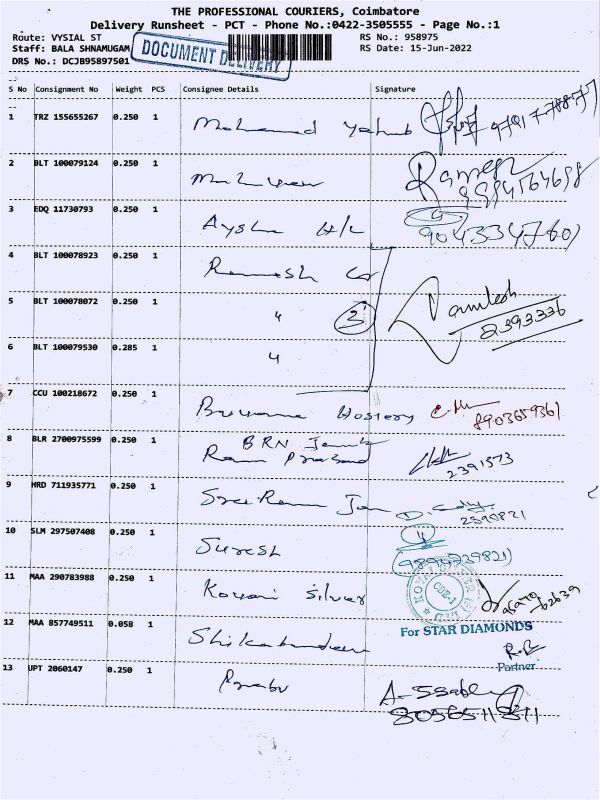 THE PROFESSIONAL COURIERS, Coimbatore
Delivery Runsheet - PCT - Phone No.:0422-3505555 - Page No.:1
Route: VYSIAL ST RS No.: 958975
Staff: BALA SHNAMUGAM RS Date: 15-Jun-2022
DRS No.: DCJB95897501
DOCUMENT DELIVERY
S No Consignment No Weight PCS Consignee Details Signature
1 TRZ 155655267 0.250 1 Mohamed
2 BLT 100079124 0.250 1 Ramesh
3 EDQ 11730793 0.250 1 Aysha H/L
4 BLT 100078923 0.250 1 Ramesh
5 BLT 100078072 0.250 1 " 3
6 BLT 100079530 0.285 1 "
2393336
7 CCU 100218672 0.250 1 Hosiery 8903659361
8 BLR 2700975599 0.250 1 BRN
Ram Prasad 2391573
9 HRD 711935771 0.250 1 Sree Ram 2390821
10 SLM 297507408 0.250 1 Suresh 4
11 MAA 290783988 0.250 1 Kovai Silver
12 MAA 857749511 0.058 1
For STAR DIAMONDS
Partner
13 UPT 2060147 0.250 1 Prabu
8056511511